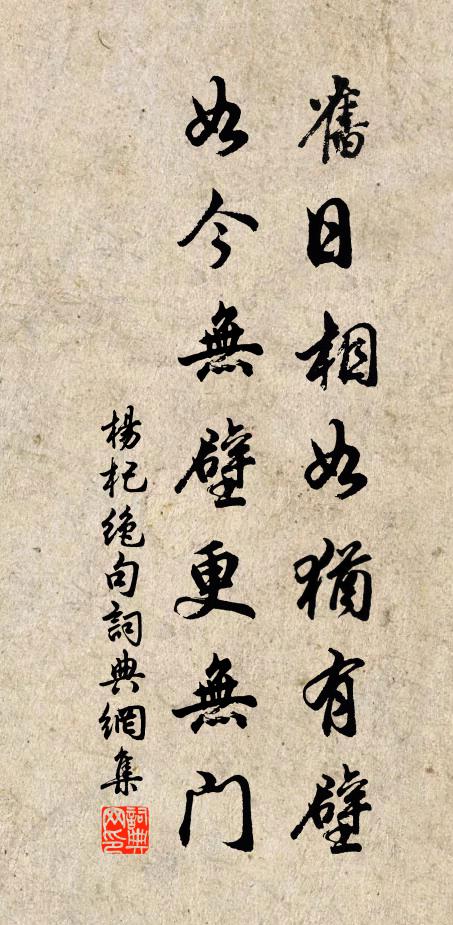 舊日相如猶有壁
如今無壁更無門
楊杞絶句詞典網集
詞典网印